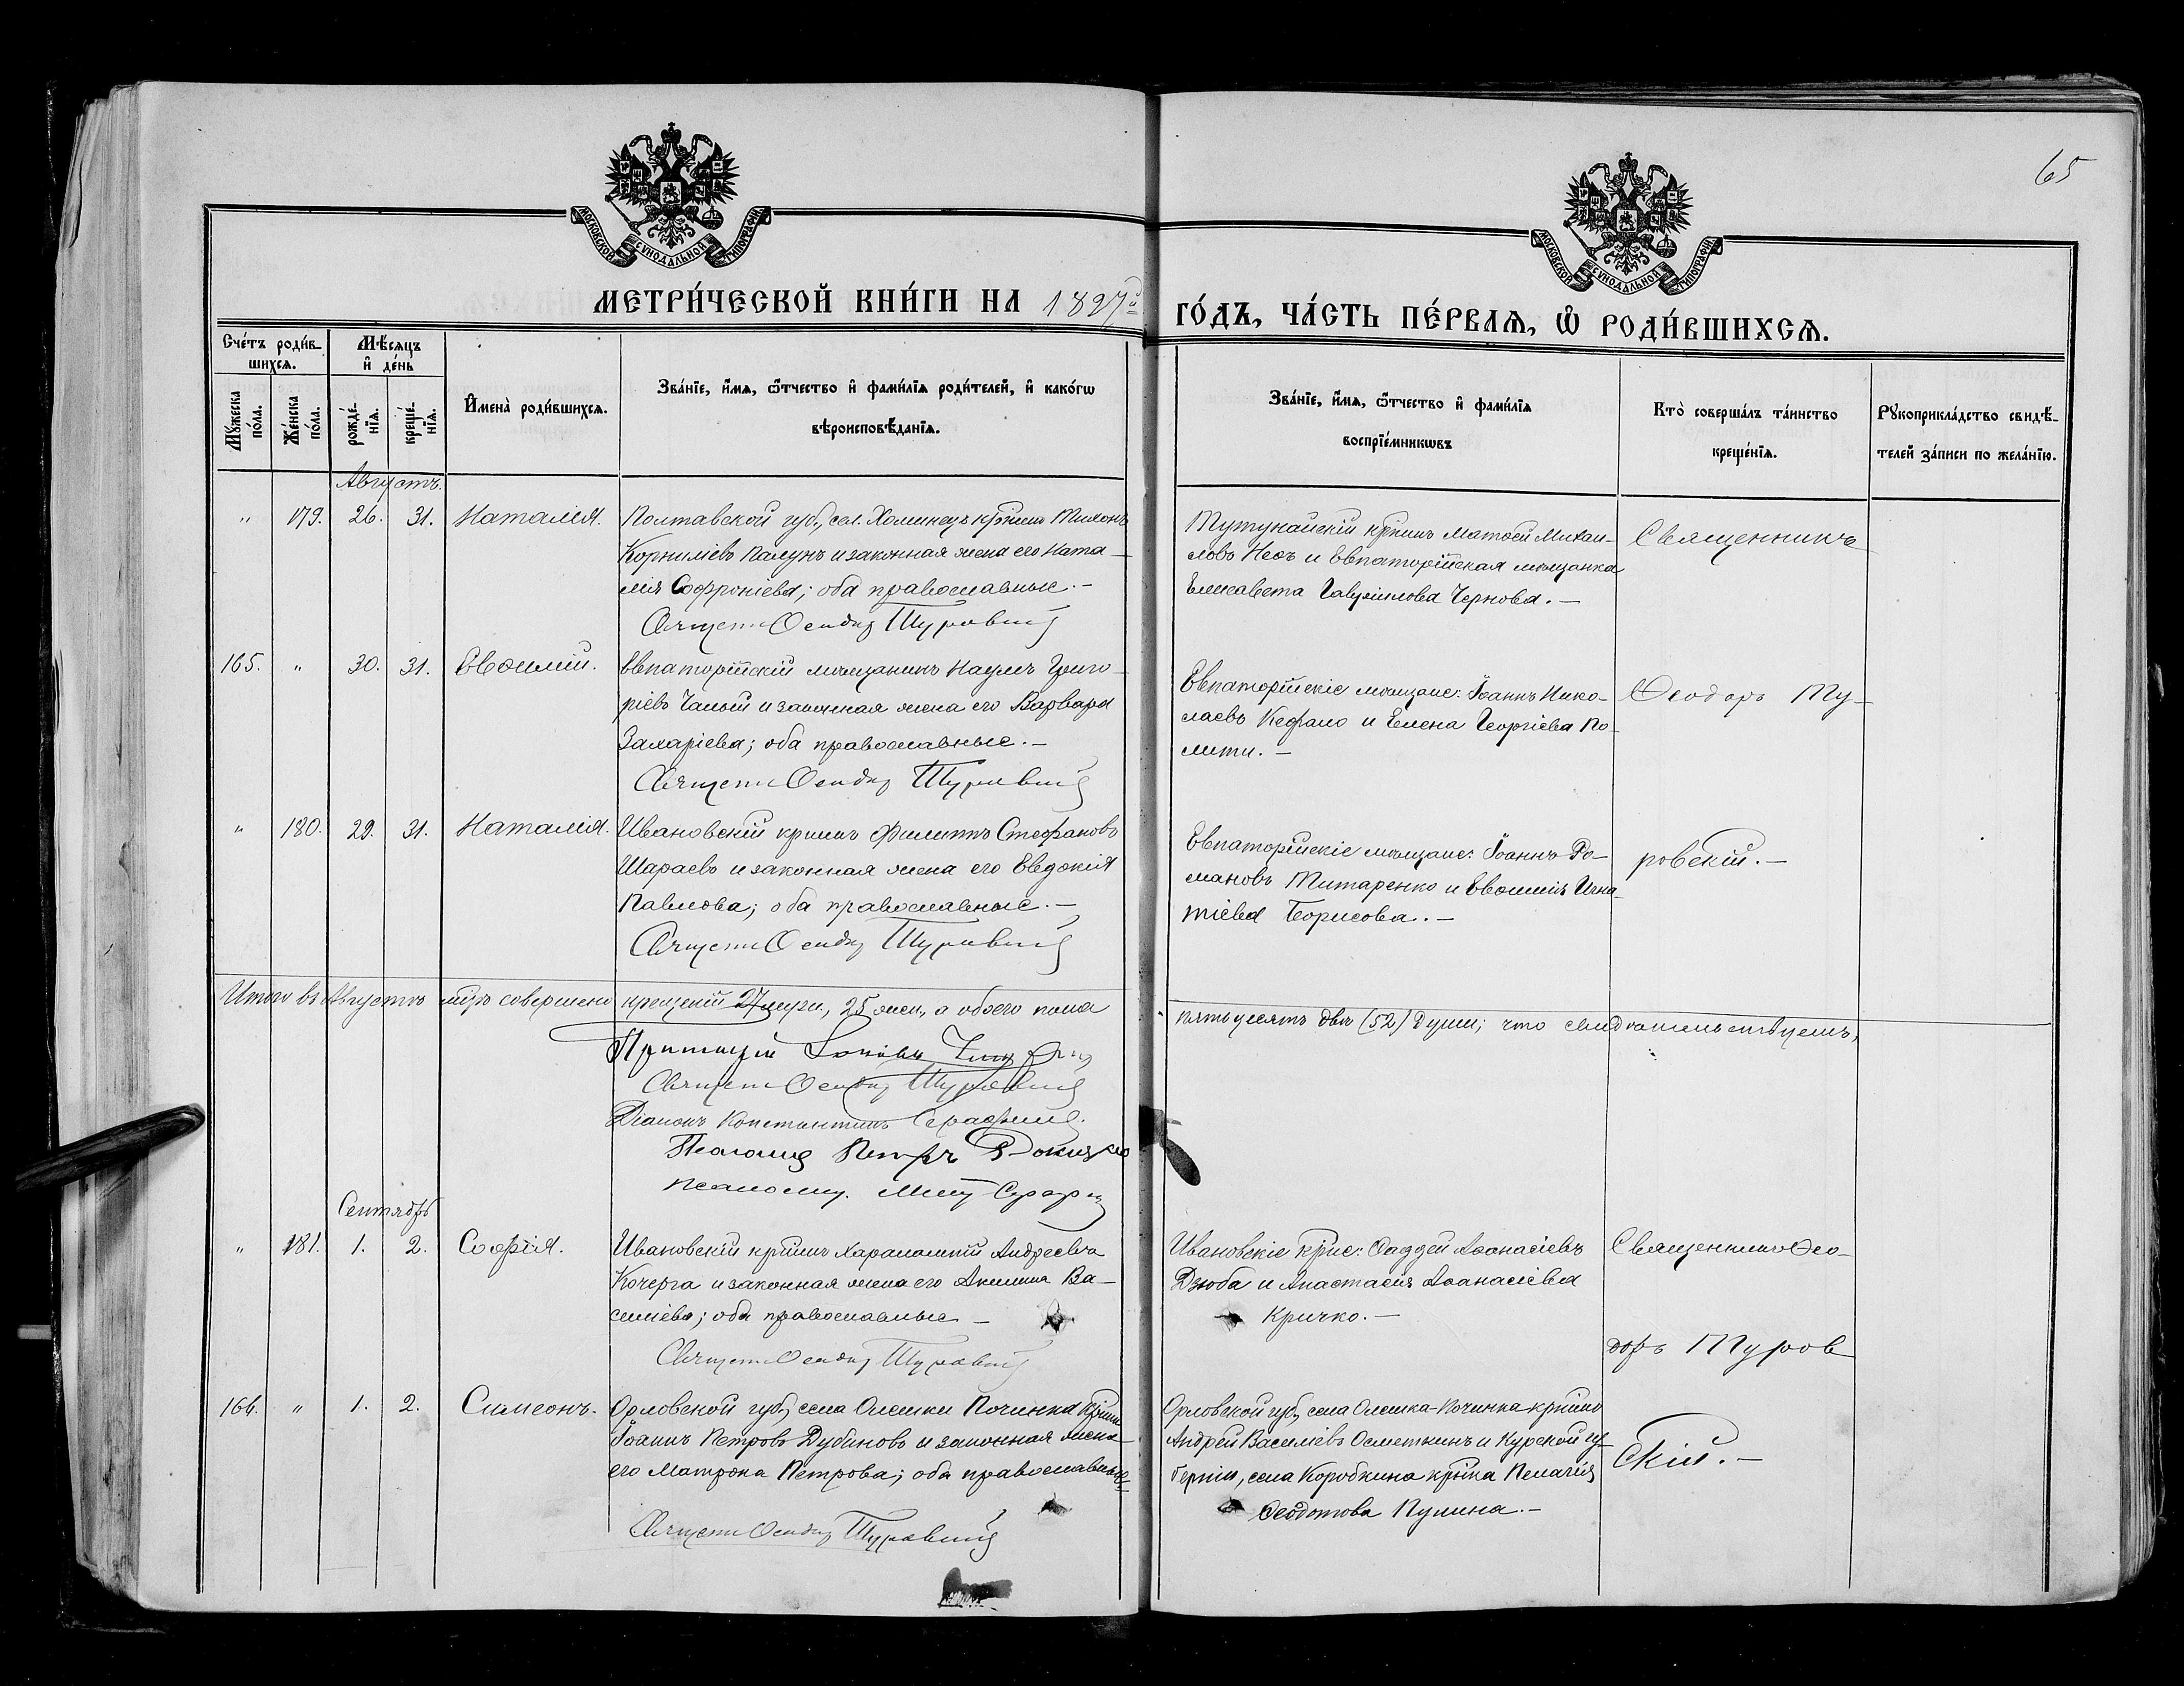 65
МОСКОВСКОЙ СѴНОДАЛЬНОЙ ТИПОГРАФІИ
МОСКОВСКОЙ СѴНОДАЛЬНОЙ ТИПОГРАФІИ
МЕТРИ́ЧЕСКОЙ КНИ́ГИ НА 1897й ГО́ДЪ, ЧА́СТЬ ПЕ́РВАѦ, Ѡ҆ РОДИ́ВШИХСѦ.
Сче́тъ роди́в-
шихсѧ.
Мѣ́сѧцъ
и҆ де́нь
Мꙋ́жеска
по́ла.
Же́нска
по́ла.
рожде́-
нїѧ.
креще́-
нїѧ.
И҆мена̀ роди́вшихсѧ.
Зва́нїе, и҆́мѧ, ѻ҆́тчество и҆ фами́лїѧ роди́телей, и҆ како́гѡ
вѣроисповѣ́данїѧ.
Зва́нїе, и҆́мѧ, ѻ҆́тчество и҆ фами́лїѧ
воспрїе́мникѡвъ
Кто̀ соверша́лъ та́инство
креще́нїѧ.
Рꙋкоприкла́дство свидѣ́-
телей за́писи по жела́нїю.
Августъ.
" 179. 26. 31. Наталія.
Полтавской губ., сел. Хоминецъ кр҃нинъ Тихонъ
Корниліевъ Палунъ и законная жена его Ната-
лія Софроніева; оба православные.-
Священ Ѳеодоръ Туровскій
Тутунайскій кр҃нинъ Матѳей Михаи-
ловъ Неоъ и Евпаторійская мѣщанка
Елисавета Гавриилова Чернова.-
Священникъ
165. " 30. 31. Евѳимій.
Евпаторійскій мѣщанинъ Наумъ Григо-
ріевъ Чалый и законная жена его Варвара
Захаріева; оба православные.-
Священ Ѳеодоръ Туровскій
Евпаторійскіе мѣщане: Іоаннъ Нико-
лаевъ Кефало и Елена Георгіева По-
лити.-
Ѳеодоръ Ту-
" 180. 29. 31. Наталія.
Ивановскій кр҃нинъ Филиппъ Стефановъ
Шараевъ и законная жена его Евдокія
Павлова; оба православные.-
Священ Ѳеодоръ Туровскій
Евпаторійскіе мѣщане: Іоаннъ Ро-
мановъ Титаренко и Евѳимія Игна-
тіева Борисова.-
ровскій.-
Итого въ Августѣ мцѣ совершено крещеній 27 муж., 25 жен., а обоего пола
пятьдесятъ двѣ (52) души; что свидѣтельствуемъ,
Протоіерей
Священ Ѳеодоръ Туровскій
Діаконъ Константинъ Серафимъ.
Псаломщ Петръ
Псаломщ.
Сентябрь
" 181. 1. 2. Софія.
Ивановскій кр҃нинъ Харалампій Андреевъ
Кочерга и законная жена его Акилина Ва-
силіева; оба православные -
Священ Ѳеодоръ Туровскій
Ивановскіе кр҃не: Ѳаддей Аѳанасіевъ
Дзюба и Анастасія Аѳанасіева
Кричко.-
Священникъ Ѳео-
доръ Туров
166. " 1. 2. Симеонъ.
Орловской губ., села Олешки Починка кр҃нинъ
Іоаннъ Петровъ Дубиновъ и законная жена
его Матрона Петрова; оба православные
Священ Ѳеодоръ Туровскій
Орловской губ., села Олешка-Починка кр҃нинъ
Андрей Василіевъ Осметкинъ и Курской гу-
берніи, села Коробкина кр҃нка Пелагія
Ѳеодотова Пулина.-
скій.-